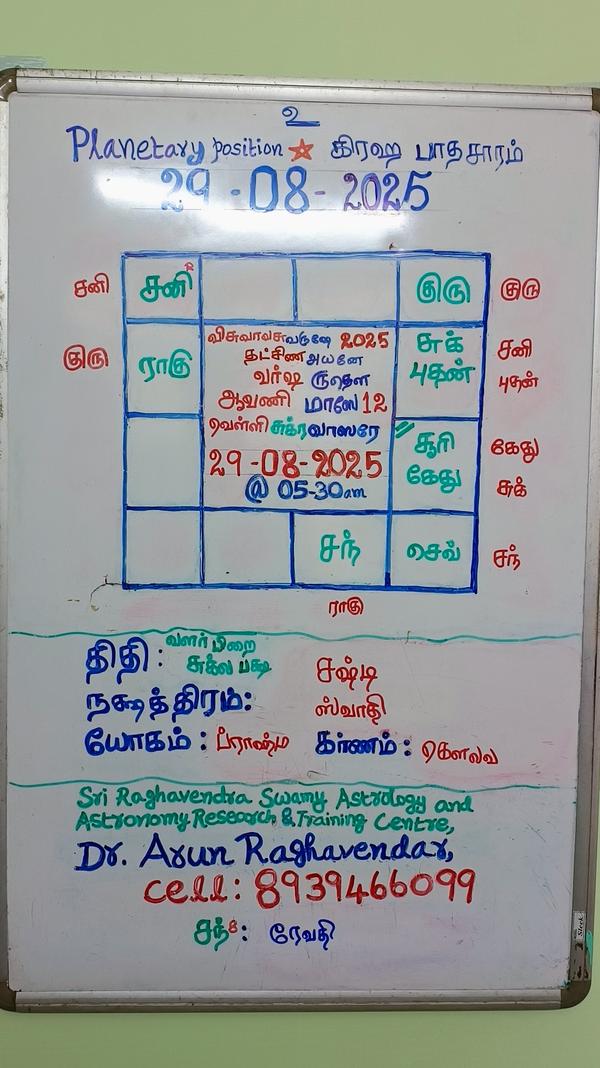 உ
Planetary position ☆ கிரஹ பாதசாரம்
29-08-2025
சனி
சனி R
குரு
குரு
குரு
ராகு
விசுவாவசுவருஷே 2025
தட்சிண அயனே
வர்ஷ ருதௌ
ஆவணி மாஸே 12
வெள்ளி சுக்ரவாஸரே
29-08-2025
@ 05-30am
சுக்
புதன்
சனி
புதன்
சூரி
கேது
கேது
சுக்
சந்
செவ்
சந்
ராகு
திதி: வளர் பிறை
சுக்ல பக்ஷ
சஷ்டி
நக்ஷத்திரம்: ஸ்வாதி
யோகம்: ப்ராஹ்ம கர்ணம்: கௌலவ
Sri Raghavendra Swamy Astrology and
Astronomy Research & Training Centre,
Dr. Arun Raghavendar,
cell: 8939466099
சந்8: ரேவதி